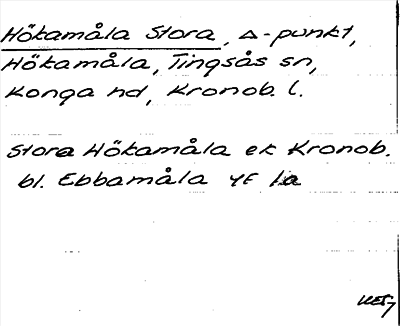 Hökamåla Stora, Δ-punkt,
Hökamåla, Tingsås sn,
Konga hd, Kronob. l.
Stora Hökamåla ek Kronob.
bl. Ebbamåla 4F 1a